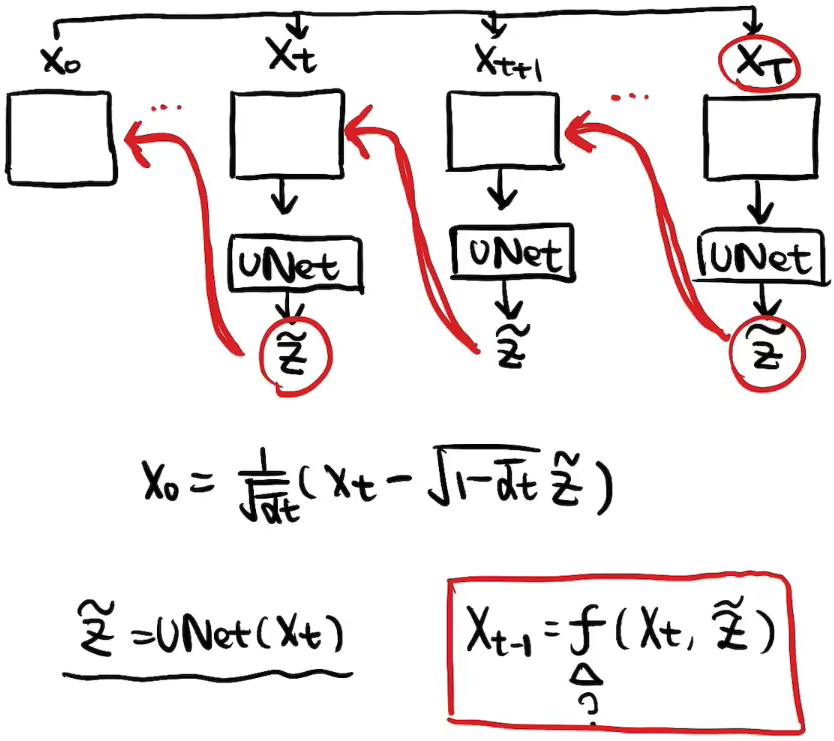 X₀ Xt Xt+1 XT
... ...
UNet UNet UNet
z̃ z̃ z̃
X₀ = 1/√ᾱt (Xt − √1−ᾱt z̃)
z̃ = UNet(Xt)
Xt-1 = f(Xt, z̃)
?